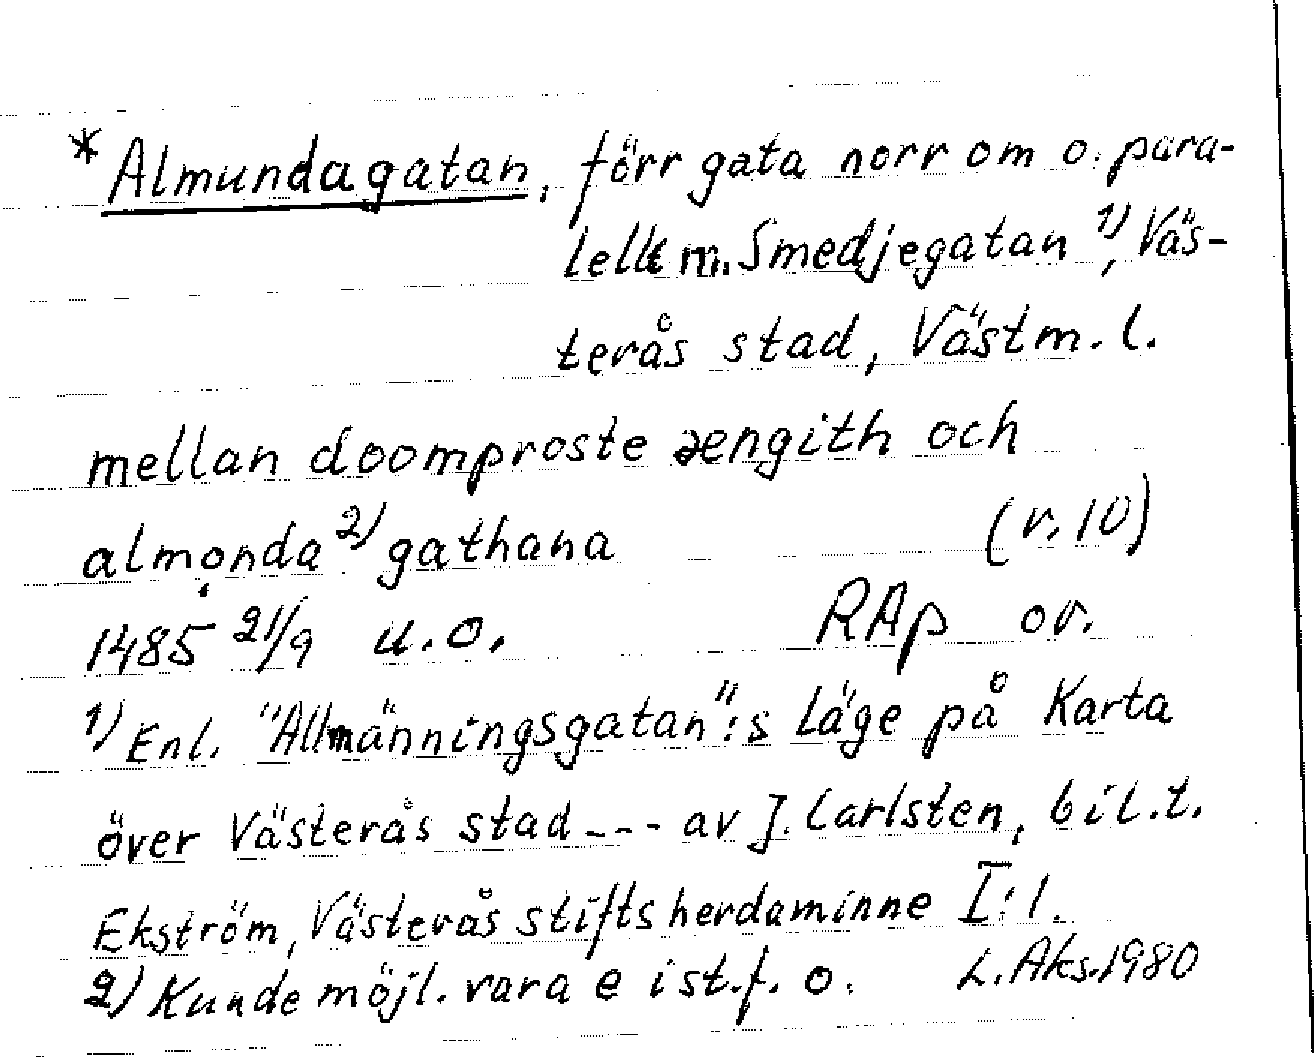 *Almundagatan, förr gata norr om o. para-
lellt m. Smedjegatan 1), Väs-
terås stad, Västm. l.
mellan doomproste ængith och
almonda 2) gathana (r. 10)
1485 21/9 u.o. RAp or.
1) Enl. "Allmänningsgatan":s läge på Karta
över Västerås stad --- av J. Carlsten, bil. t.
Ekström, Västerås stifts herdaminne I:1.
2) Kunde möjl. vara e i st. f. o. L. Aks. 1980